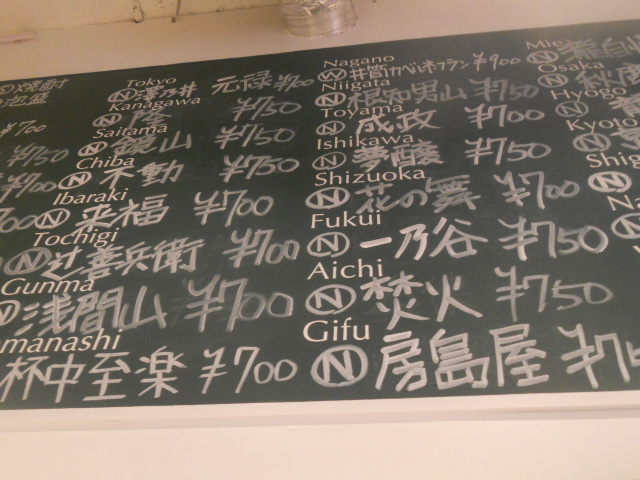 泡盛
¥700
¥750
¥700
Tokyo
Ⓝ澤乃井 元禄 ¥700
Kanagawa
Ⓝ隆 ¥750
Saitama
Ⓝ鏡山 ¥750
Chiba
Ⓝ不動 ¥750
Ibaraki
Ⓝ来福 ¥700
Tochigi
Ⓝ辻善兵衛 ¥700
Gunma
浅間山 ¥700
manashi
杯中至楽 ¥700
Nagano
Ⓦ井筒カベルネフラン ¥900
Niigata
Ⓝ根知男山 ¥750
Toyama
Ⓝ成政 ¥700
Ishikawa
Ⓝ夢醸 ¥750
Shizuoka
Ⓝ花の舞 ¥700
Fukui
Ⓝ一乃谷 ¥750
Aichi
Ⓝ焚火 ¥750
Gifu
Ⓝ房島屋 ¥7
Mie
Osaka
Ⓝ秋鹿
Hyogo
Ⓝ
Kyoto
Ⓝ
Shig
Ⓝ
Na
Ⓝ